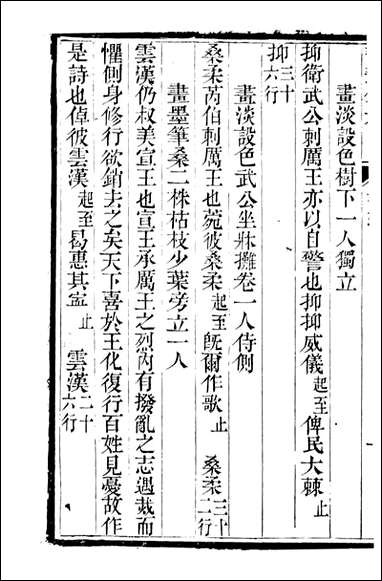 畫淡設色樹下一人獨立
抑衞武公刺厲王亦以自警也抑抑威儀起至俾民大棘止
抑三十六行
畫淡設色武公坐牀攤卷一人侍側
桑柔芮伯刺厲王也菀彼桑柔起至旣爾作歌止　桑柔三十二行
畫墨筆桑二株枯枝少葉旁立一人
雲漢仍叔美宣王也宣王承厲王之烈內有撥亂之志遇烖而
懼側身修行欲銷去之矣天下喜於王化復行百姓見憂故作
是詩也倬彼雲漢起至曷惠其寍止　雲漢二十六行